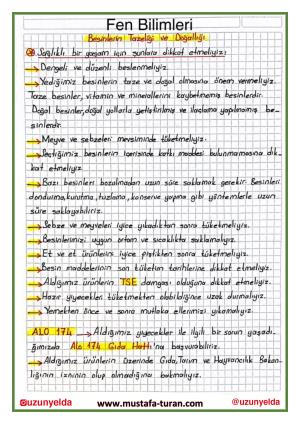 Fen Bilimleri
Besinlerin Tazeliği ve Doğallığı
Sağlıklı bir yaşam için şunlara dikkat etmeliyiz:
→ Dengeli ve düzenli beslenmeliyiz.
→ Yediğimiz besinlerin taze ve doğal olmasına önem vermeliyiz.
Taze besinler, vitamin ve minerallerini kaybetmemiş besinlerdir.
Doğal besinler, doğal yollarla yetiştirilmiş ve ilaçlama yapılmamış be-
sinlerdir.
→ Meyve ve sebzeleri mevsiminde tüketmeliyiz.
→ Seçtiğimiz besinlerin içerisinde katkı maddesi bulunmamasına dik-
kat etmeliyiz.
→ Bazı besinleri bozulmadan uzun süre saklamak gerekir. Besinleri
dondurma, kurutma, tuzlama, konserve yapma gibi yöntemlerle uzun
süre saklayabiliriz.
→ Sebze ve meyveleri iyice yıkadıktan sonra tüketmeliyiz.
→ Besinlerimizi uygun ortam ve sıcaklıkta saklamalıyız.
→ Et ve et ürünlerini iyice pişirdikten sonra tüketmeliyiz.
→ Besin maddelerinin son tüketim tarihlerine dikkat etmeliyiz.
→ Aldığımız ürünlerin TSE damgası olduğuna dikkat etmeliyiz.
→ Hazır yiyecekler tüketmekten olabildiğince uzak durmalıyız.
→ Yemekten önce ve sonra mutlaka ellerimizi yıkamalıyız.
ALO 174 → Aldığımız yiyecekler ile ilgili bir sorun yaşadı-
ğımızda Alo 174 Gıda Hattı'na başvurabiliriz.
→ Aldığımız ürünlerin üzerinde Gıda, Tarım ve Hayvancılık Bakan-
lığının izninin olup olmadığına bakmalıyız.
@uzunyelda www.mustafa-turan.com @uzunyelda